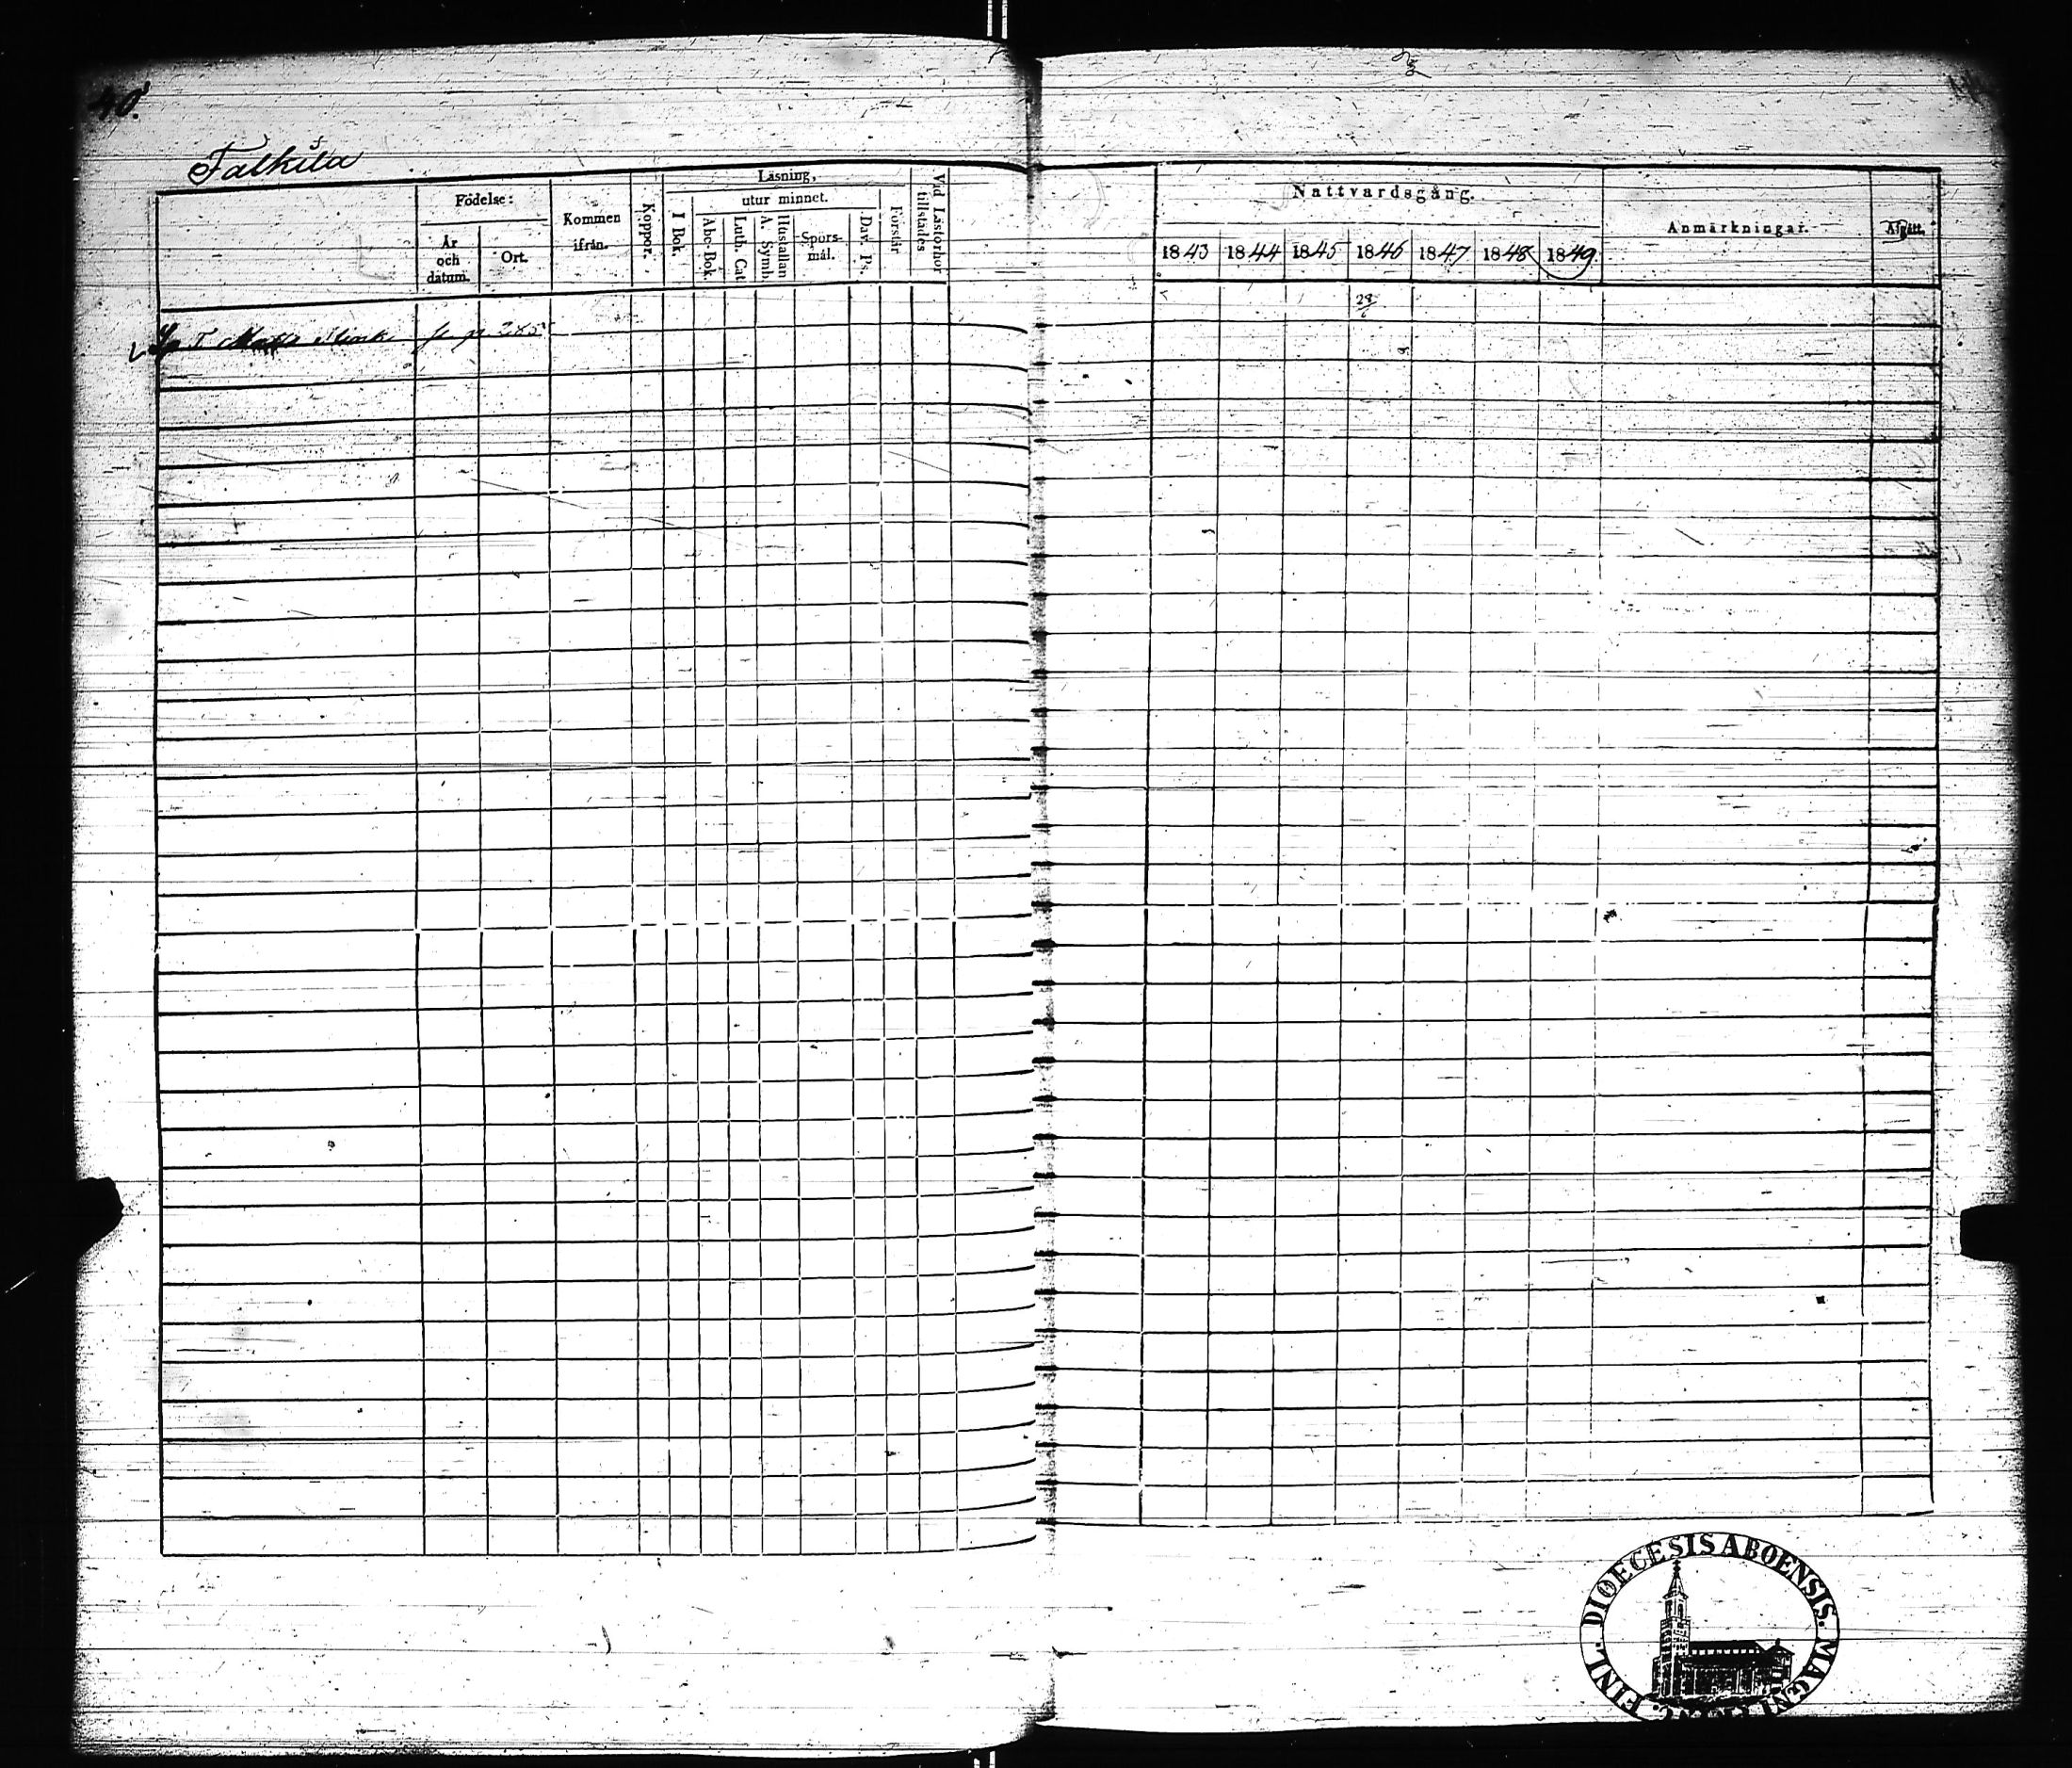 40.
Falkila
Födelse:
År och datum.
Ort.
Kommen ifrån.
Koppor.
Läsning,
I Bok.
utur minnet.
Abc-Bok.
Luth. Cat
A. Symb.
Hustaflan
Spörsmål.
Dav. Ps.
Förstår
Vid Läsförhör tillstädes
Nattvardsgång.
1843 1844 1845 1846 1847 1848 1849
Anmärkningar.
Afgått.
28/6
fr. p. 285
DIOECESIS ABOENSIS. MAGNI FINL.